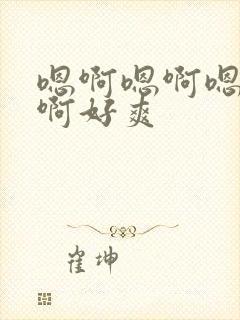 嗯啊嗯啊嗯
啊好爽
崔坤